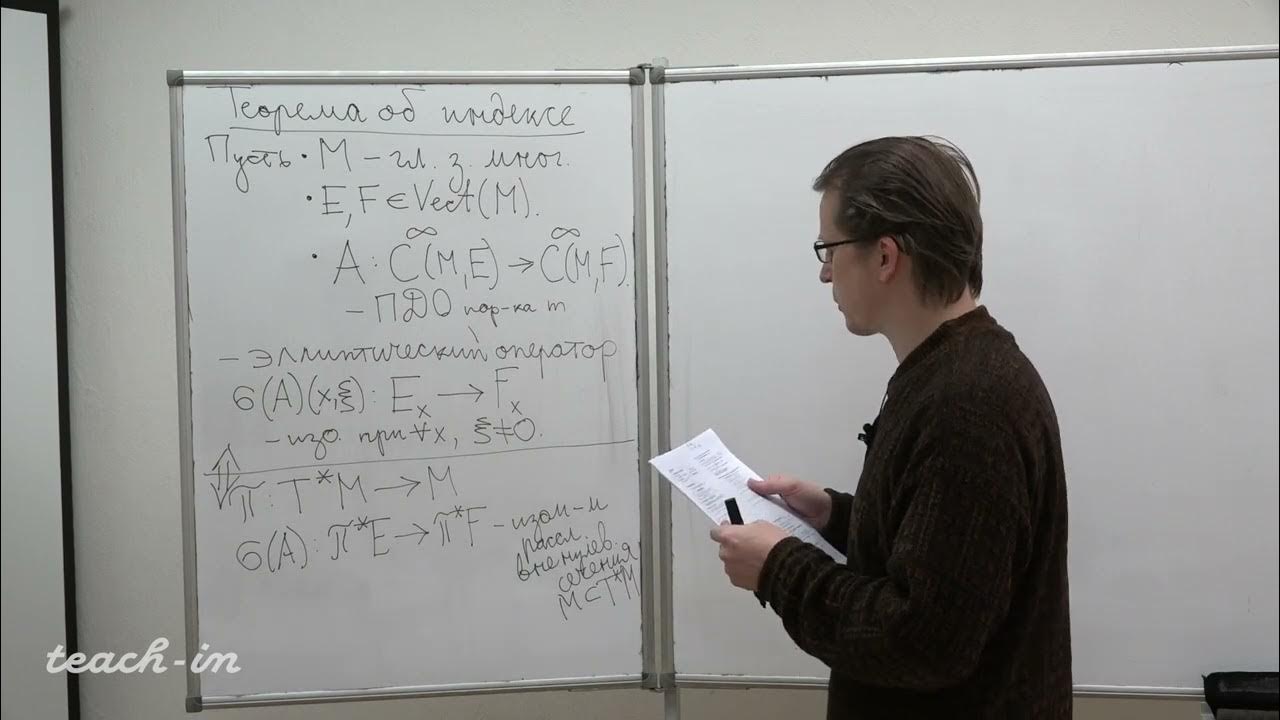 Теорема об индексе
Пусть • M – гл. з. мног.
• E, F ∈ Vect(M).
• A : C^∞(M, E) → C^∞(M, F).
– ПДО пор-ка m
– эллиптический оператор
σ(A)(x, ξ) : E_x → F_x
– изо. при ∀x, ξ ≠ 0.
⇕
π : T*M → M
σ(A) : π*E → π*F – изом-м
рассл.
вне нулев.
сечения
M ⊂ T*M
teach-in